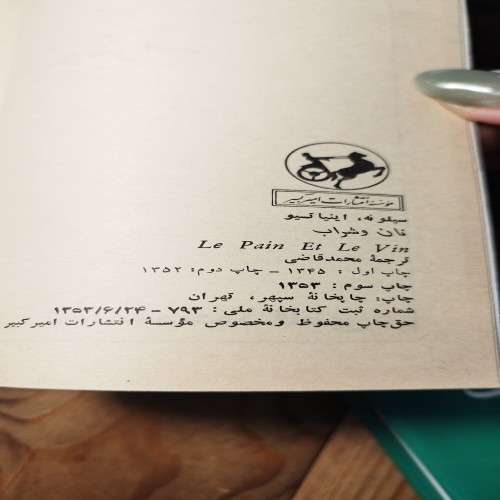 مؤسسهٔ انتشارات امیرکبیر
سیلونه، اینیاتسیو
نان و شراب
Le Pain Et Le Vin
ترجمهٔ محمد قاضی
چاپ اول : ۱۳۴۵ - چاپ دوم: ۱۳۵۲
چاپ سوم : ۱۳۵۳
چاپ: چاپخانهٔ سپهر، تهران
شمارهٔ ثبت کتابخانهٔ ملی : ۷۹۳ - ۱۳۵۳/۶/۲۴
حق چاپ محفوظ و مخصوص مؤسسهٔ انتشارات امیرکبیر